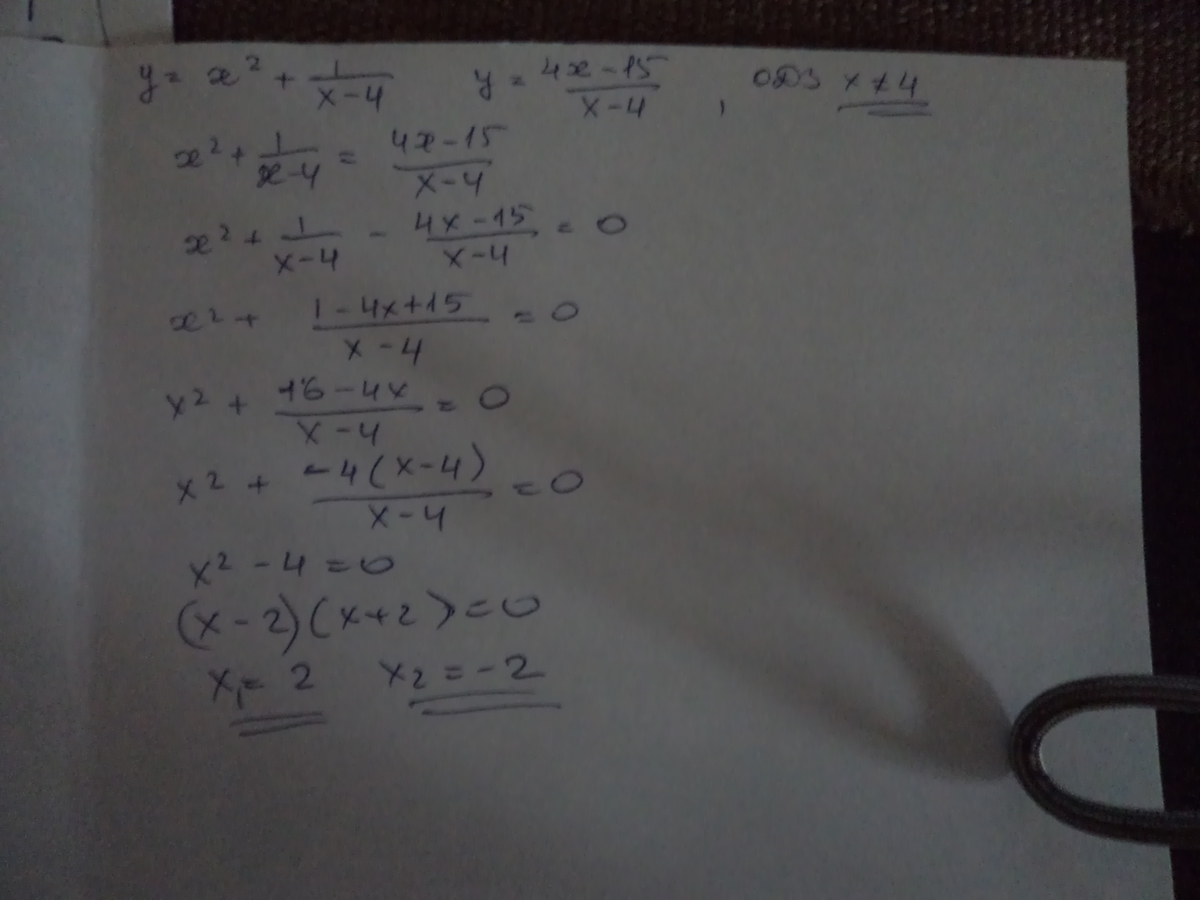 y = x² + 1/(x-4)    y = (4x-15)/(x-4) , ОДЗ x ≠ 4
x² + 1/(x-4) = (4x-15)/(x-4)
x² + 1/(x-4) - (4x-15)/(x-4) = 0
x² + (1-4x+15)/(x-4) = 0
x² + (16-4x)/(x-4) = 0
x² + (-4(x-4))/(x-4) = 0
x² - 4 = 0
(x-2)(x+2) = 0
x₁ = 2    x₂ = -2